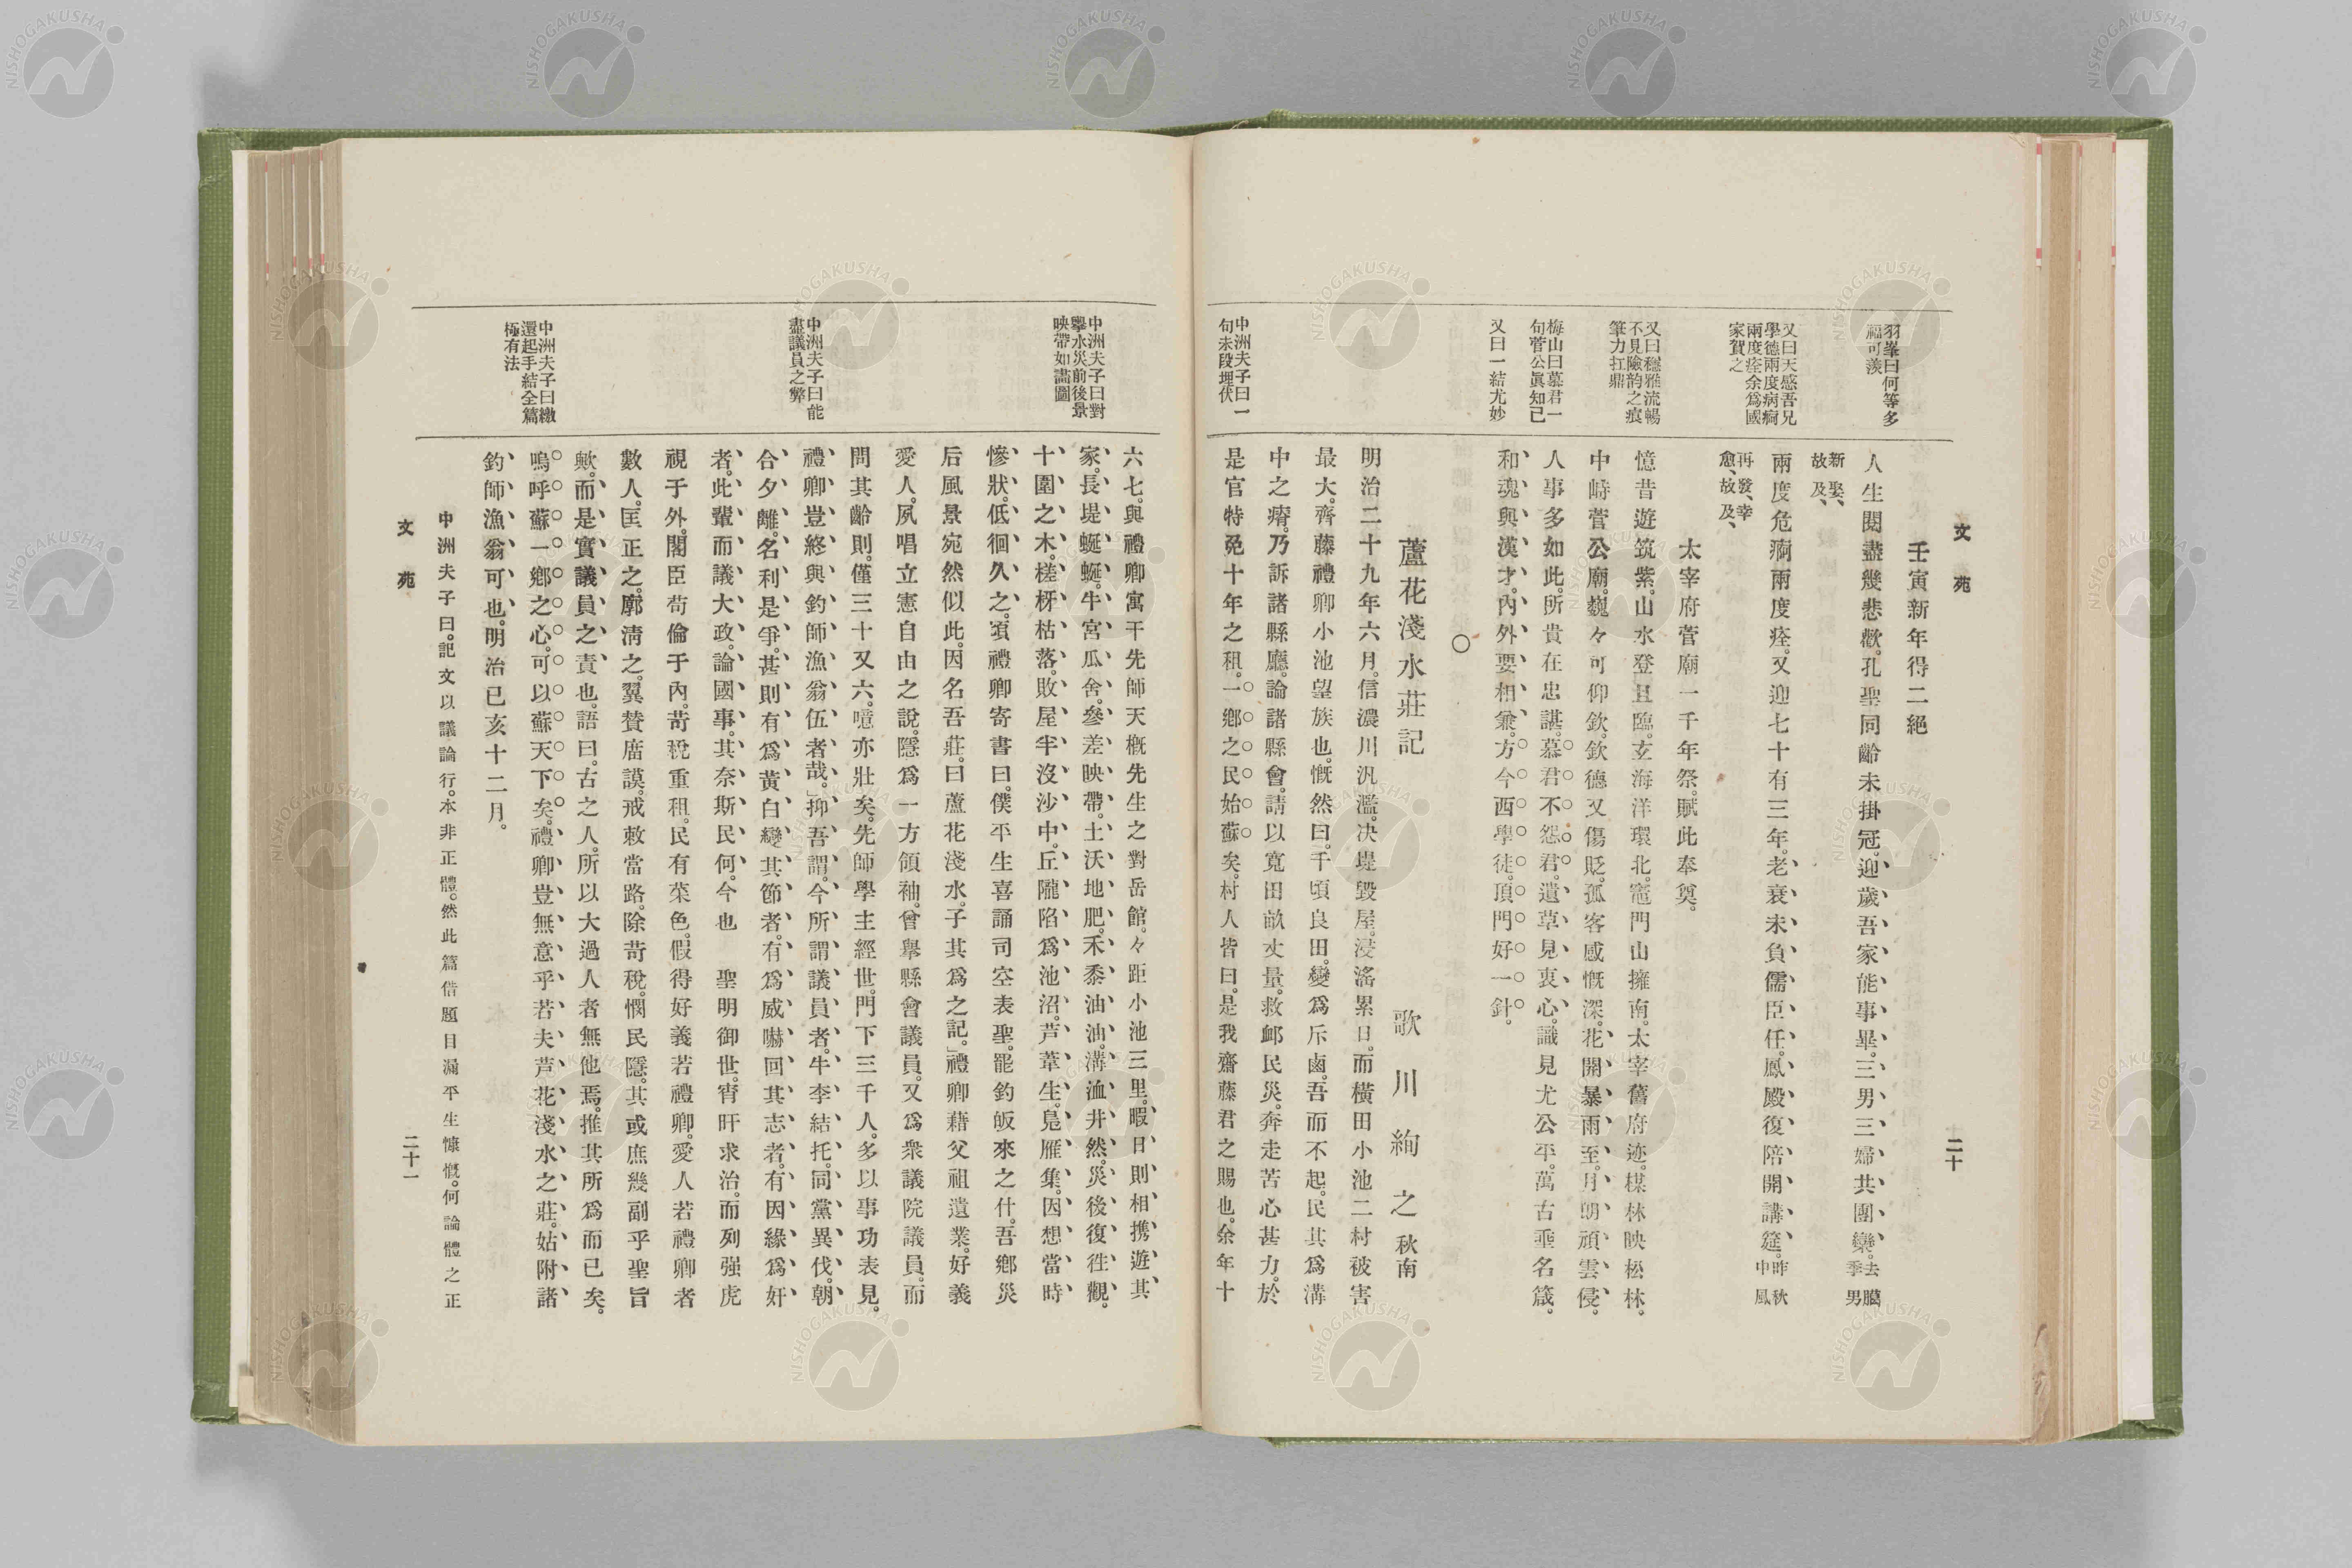 文苑
二十
羽峯曰何等多
福可羨
又曰天感吾兄
學德兩度病痾
兩度痊余爲國
家賀之
又曰穩雅流暢
不見險韵之痕
筆力扛鼎
梅山曰慕君一
句菅公眞知己
又曰一結尤妙
中洲夫子曰一
句未段埋伏
壬寅新年得二絕
人生閱盡幾悲歡。孔聖同齡未掛冠。迎歲吾家能事畢。三男三婦共團欒。去臘季男
新娶、故及、
兩度危痾兩度痊。又迎七十有三年。老衰未負儒臣任。鳳殿復陪開講筵。昨秋中風
再發、幸愈、故及、
太宰府菅廟一千年祭。賦此奉奠。
憶昔遊筑紫。山水登且臨。玄海洋環北。竈門山擁南。太宰舊府迹。楳林映松林。
中峙菅公廟。巍々可仰欽。欽德又傷貶。孤客感慨深。花開暴雨至。月朗頑雲侵。
人事多如此。所貴在忠諶。慕君不怨君。遺草見衷心。識見尤公平。萬古垂名箴。
和魂與漢才。內外要相兼。方今西學徒。頂門好一針。
○
蘆花淺水莊記
歌川絢之 秋南
明治二十九年六月。信濃川汎濫。决堤毀屋。浸滛累日。而橫田小池二村被害
最大。齊藤禮卿小池望族也。慨然曰。千頃良田。變爲斥鹵。吾而不起。民其爲溝
中之瘠。乃訴諸縣廳。論諸縣會。請以寬田畝丈量。救卹民災。奔走苦心甚力。於
是官特免十年之租。一鄕之民始蘇矣。村人皆曰。是我齋藤君之賜也。余年十
中洲夫子曰對
擧水災前後景
映帶如畵圖
中洲夫子曰能
盡議員之弊
中洲夫子曰繳
還起手結全篇
極有法
六七。與禮卿寓干先師天槪先生之對岳館。々距小池三里。暇日則相携遊其
家。長堤蜒蜒。牛宮瓜舍。參差映帶。土沃地肥。禾黍油油。溝洫井然。災後復徃觀。
十圍之木。槎枒枯落。敗屋半沒沙中。丘隴陷爲池沼。芦葦生。鳧雁集。因想當時
慘狀。低徊久之。頃禮卿寄書曰。僕平生喜誦司空表聖。罷釣皈來之什。吾鄕災
后風景宛然似此。因名吾莊。曰蘆花淺水。子其爲之記。」禮卿藉父祖遺業。好義
愛人。夙唱立憲自由之說。隱爲一方領袖。曾擧縣會議員。又爲衆議院議員。而
問其齡則。僅三十又六。噫亦壯矣。先師學主經世。門下三千人。多以事功表見。
禮卿豈終與釣師漁翁伍者哉。」抑吾謂。今所謂議員者。牛李結托。同黨異伐。朝
合夕離。名利是爭。甚則有爲黃白變其節者。有爲威嚇回其志者。有因緣爲奸
者。此輩而議大政。論國事。其奈斯民何。今也 聖明御世。宵旰求治。而列强虎
視于外。閣臣苟倫于內。苛稅重租。民有菜色。假得好義若禮卿。愛人若禮卿者
數人。匡正之。廓淸之。翼賛庿謨。戒敕當路。除苛稅。憫民隱。其或庶幾副乎聖旨
歟。而是實議員之責也。語曰。古之人。所以大過人者無他焉。推其所爲而已矣。
嗚呼蘇一鄕之心。可以蘇天下矣。禮卿豈無意乎。若夫芦花淺水之莊。姑附諸
釣師漁翁可也。明治己亥十二月。
中洲夫子曰。記文以議論行。本非正體。然此篇借題目漏平生慷慨。何論體之正
文苑
二十一